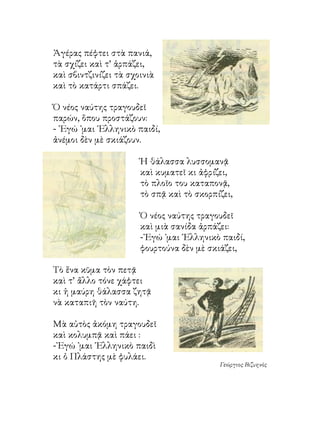 Ἀγέρας πέφτει στὰ πανιά,
τὰ σχίζει καὶ τ' ἁρπάζει,
καὶ σβιντζινίζει τὰ σχοινιὰ
καὶ τὸ κατάρτι σπάζει.
Ὁ νέος ναύτης τραγουδεῖ
παρών, ὅπου προστάζουν:
- Ἐγώ 'μαι Ἑλληνικὸ παιδί,
ἀνέμοι δὲν μὲ σκιάζουν.
Ἡ θάλασσα λυσσομανᾷ
καὶ κυματεῖ κι ἀφρίζει,
τὸ πλοῖο του καταπονᾷ,
τὸ σπᾷ καὶ τὸ σκορπίζει,
Ὁ νέος ναύτης τραγουδεῖ
καὶ μιὰ σανίδα ἁρπάζει:
-Ἐγώ 'μαι Ἑλληνικὸ παιδί,
φουρτούνα δὲν μὲ σκιάζει,
Τὸ ἕνα κῦμα τὸν πετᾷ
καὶ τ' ἄλλο τόνε χάφτει
κι ἡ μαύρη θάλασσα ζητᾷ
νὰ καταπιῇ τὸν ναύτη.
Μὰ αὐτὸς ἀκόμη τραγουδεῖ
καὶ κολυμπᾷ καὶ πάει :
-Ἐγώ 'μαι Ἑλληνικὸ παιδὶ
κι ὁ Πλάστης μὲ φυλάει.
Γεώργιος Βιζυηνός